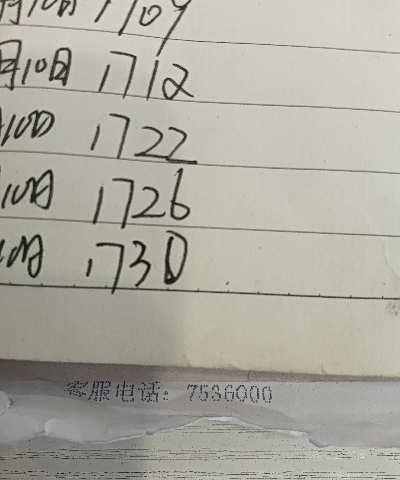 月10日 1709
月10日 1712
10日 1722
10日 1726
10日 1730
客服电话：7536000